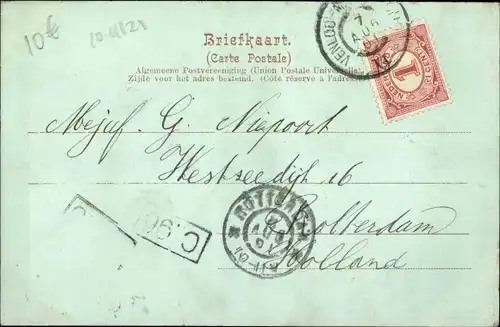 10€
Briefkaart.
(Carte Postale)
Algemeene Postvereeniging (Union Postale Universelle)
Zijde voor het adres bestemd. (Côté réservé à l'adresse)
VENLOO
7
AUG
1
Mejuf. G. Niepoort
Westzeedijk 16
Rotterdam
Holland
ROTTERDAM
AUG
C.96